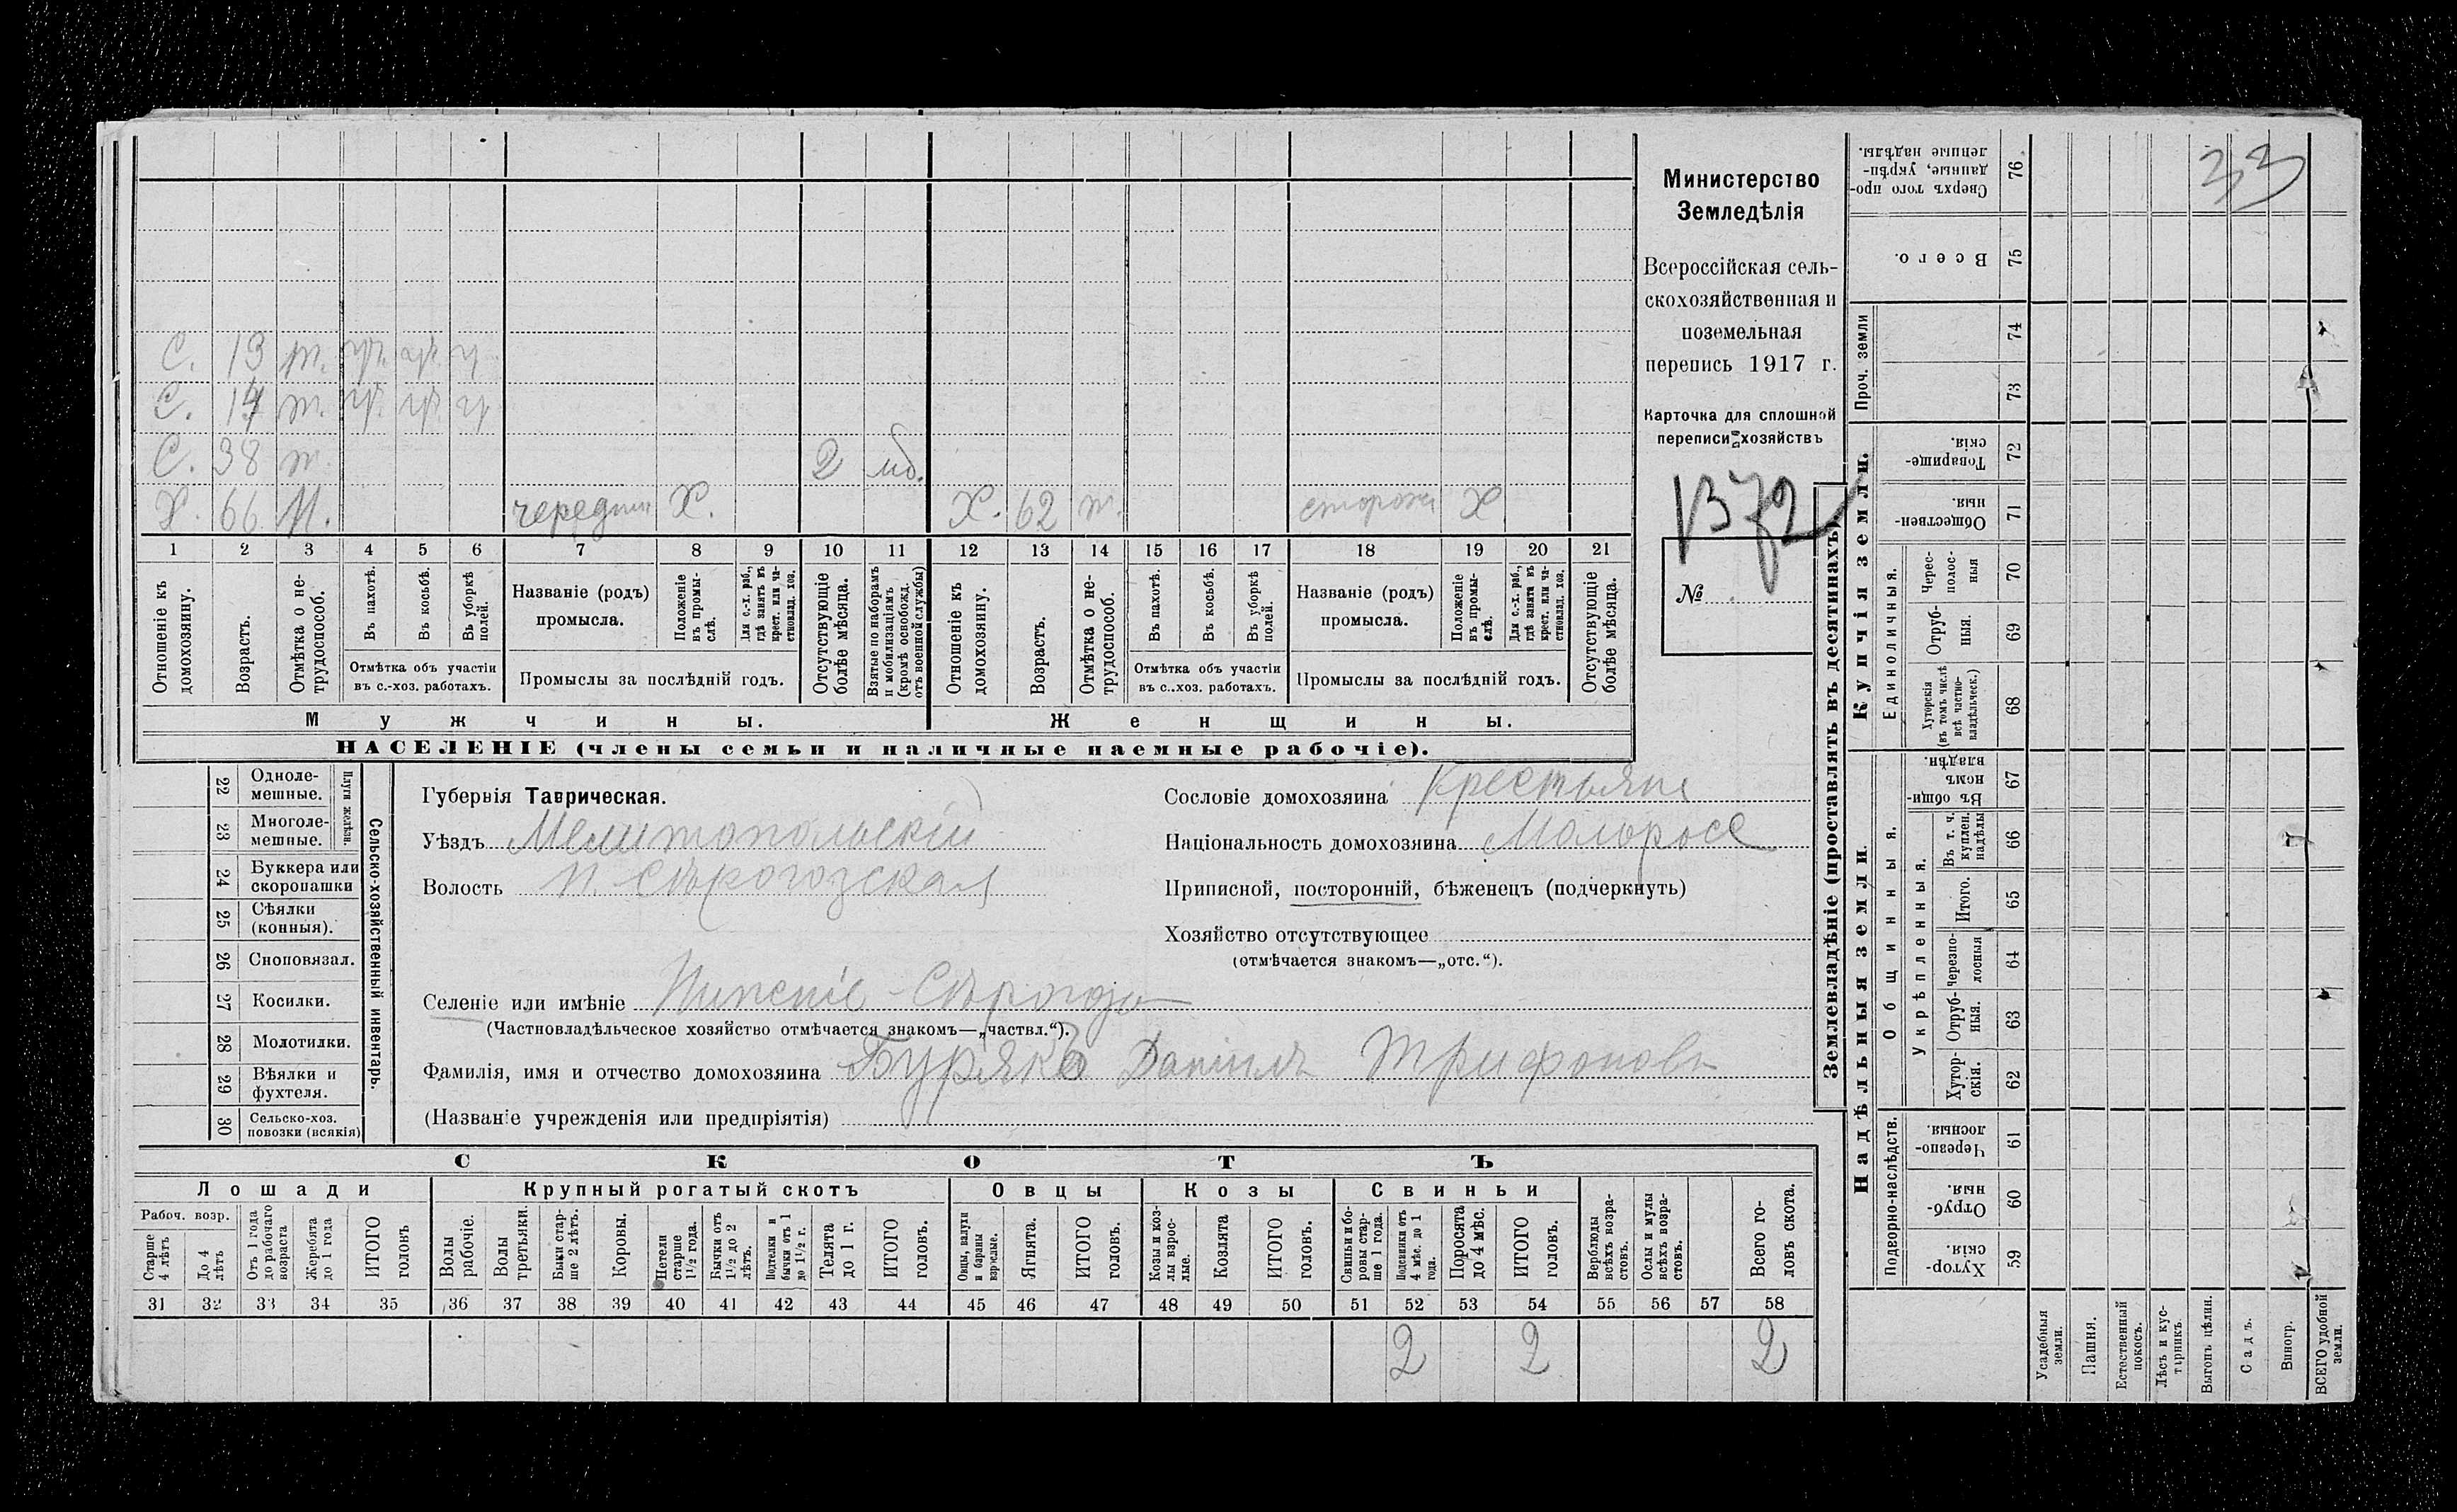 33
С. 13 т. ур. ур. ур.
С. 14 т. ур. ур. ур.
С. 38 т. 2 мб.
Х. 66 Х. Х. 62 т. Х
1 2 3 4 5 6 7 8 9 10 11 12 13 14 15 16 17 18 19 20 21
Отношеніе къ домохозяину.
Возрастъ.
Отмѣтка о не-трудоспособ.
Въ пахотѣ.
Въ косьбѣ.
Въ уборкѣ полей.
Отмѣтка объ участіи
въ с.-хоз. работахъ.
Названіе (родъ)
промысла.
Положеніе въ промы-слѣ.
Для с.-х. раб., гдѣ занятъ въ крест. или ча-стновлад. хоз.
Промыслы за послѣдній годъ.
Отсутствующіе болѣе мѣсяца.
Взятые по наборамъ и мобилизаціямъ (кромѣ освобожд. отъ военной службы)
Отношеніе къ домохозяину.
Возрастъ.
Отмѣтка о не-трудоспособ.
Въ пахотѣ.
Въ косьбѣ.
Въ уборкѣ полей.
Отмѣтка объ участіи
въ с..хоз. работахъ.
Названіе (родъ)
промысла.
Положеніе въ промы-слѣ.
Для с.-х. раб., гдѣ занята въ крест. или ча-стновлад. хоз.
Промыслы за послѣдній годъ.
Отсутствующіе болѣе мѣсяца.
Мужчины. Женщины.
НАСЕЛЕНІЕ (члены семьи и наличные наемные рабочіе).
Министерство
Земледѣлія
Всероссійская сель-
скохозяйственная и
поземельная
перепись 1917 г.
Карточка для сплошной
переписи хозяйствъ
1372
№
22 Одноле-мешные.
23 Многоле-мешные.
Плуги желѣзн.
24 Буккера или скоропашки
25 Сѣялки (конныя).
26 Сноповязал.
27 Косилки.
28 Молотилки.
29 Вѣялки и фухтеля.
30 Сельско-хоз. повозки (всякія)
Сельско-хозяйственный инвентарь.
Губернія Таврическая.
Уѣздъ Мелитопольскій
Волость Н. Сѣрогозская
Сословіе домохозяина Крестьяне
Національность домохозяина Малоросс
Приписной, посторонній, бѣженецъ (подчеркнуть)
Хозяйство отсутствующее
(отмѣчается знакомъ—„отс.“).
Селеніе или имѣніе Нижніе-Сѣрогозы
(Частновладѣльческое хозяйство отмѣчается знакомъ—„частвл.“).
Фамилія, имя и отчество домохозяина Бурякъ Даніилъ Трифоновъ
(Названіе учрежденія или предпріятія)
СКОТЪ
Лошади Крупный рогатый скотъ Овцы Козы Свиньи
Рабоч. возр.
Старше 4 лѣтъ
До 4 лѣтъ
Отъ 1 года до рабочаго возраста
Жеребята до 1 года
ИТОГО головъ
Волы рабочіе.
Волы третьяки.
Быки стар-ше 2 лѣтъ.
Коровы.
Нетели старше 1½ года.
Бычки отъ 1½ до 2 лѣтъ.
Подтелки и бычки отъ 1 до 1½ г.
Телята до 1 г.
ИТОГО головъ.
Овцы, валухи и бараны взрослые.
Ягнята.
ИТОГО головъ.
Козы и коз-лы взрос-лые.
Козлята
ИТОГО головъ.
Свиньи и бо-ровы стар-ше 1 года.
Подсвинки отъ 4 мѣс. до 1 года.
Поросята до 4 мѣс.
ИТОГО головъ.
Верблюды всѣхъ возра-стовъ.
Ослы и мулы всѣхъ возра-стовъ.
Всего го-ловъ скота.
31 32 33 34 35 36 37 38 39 40 41 42 43 44 45 46 47 48 49 50 51 52 53 54 55 56 57 58
2 2 2
Землевладѣніе (проставлять въ десятинахъ).
Надѣльныя земли. Купчія земли.
Подворно-наслѣдств.
Общинныя.
Укрѣпленныя.
Единоличныя.
Проч. земли
59 Хутор-скія.
60 Отруб-ныя.
61 Черезпо-лосныя.
62 Хутор-скія.
63 Отруб-ныя.
64 Черезпо-лосныя
65 Итого.
66 Въ т. ч. куплен. надѣлы
67 Въ общи-номъ владѣн.
68 Хуторскія (въ томъ числѣ всѣ частно-владѣльческ.)
69 Отруб-ныя.
70 Черес-полос-ныя
71 Обществен-ныя.
72 Товарище-скія.
73
74
75 Всего.
76 Сверхъ того про-данные, укрѣп-ленные надѣлы.
Усадебныя земли.
Пашня.
Естественный покосъ.
Лѣсъ и кус-тарникъ.
Выгонъ цѣлин.
Садъ.
Виногр.
ВСЕГО удобной земли.